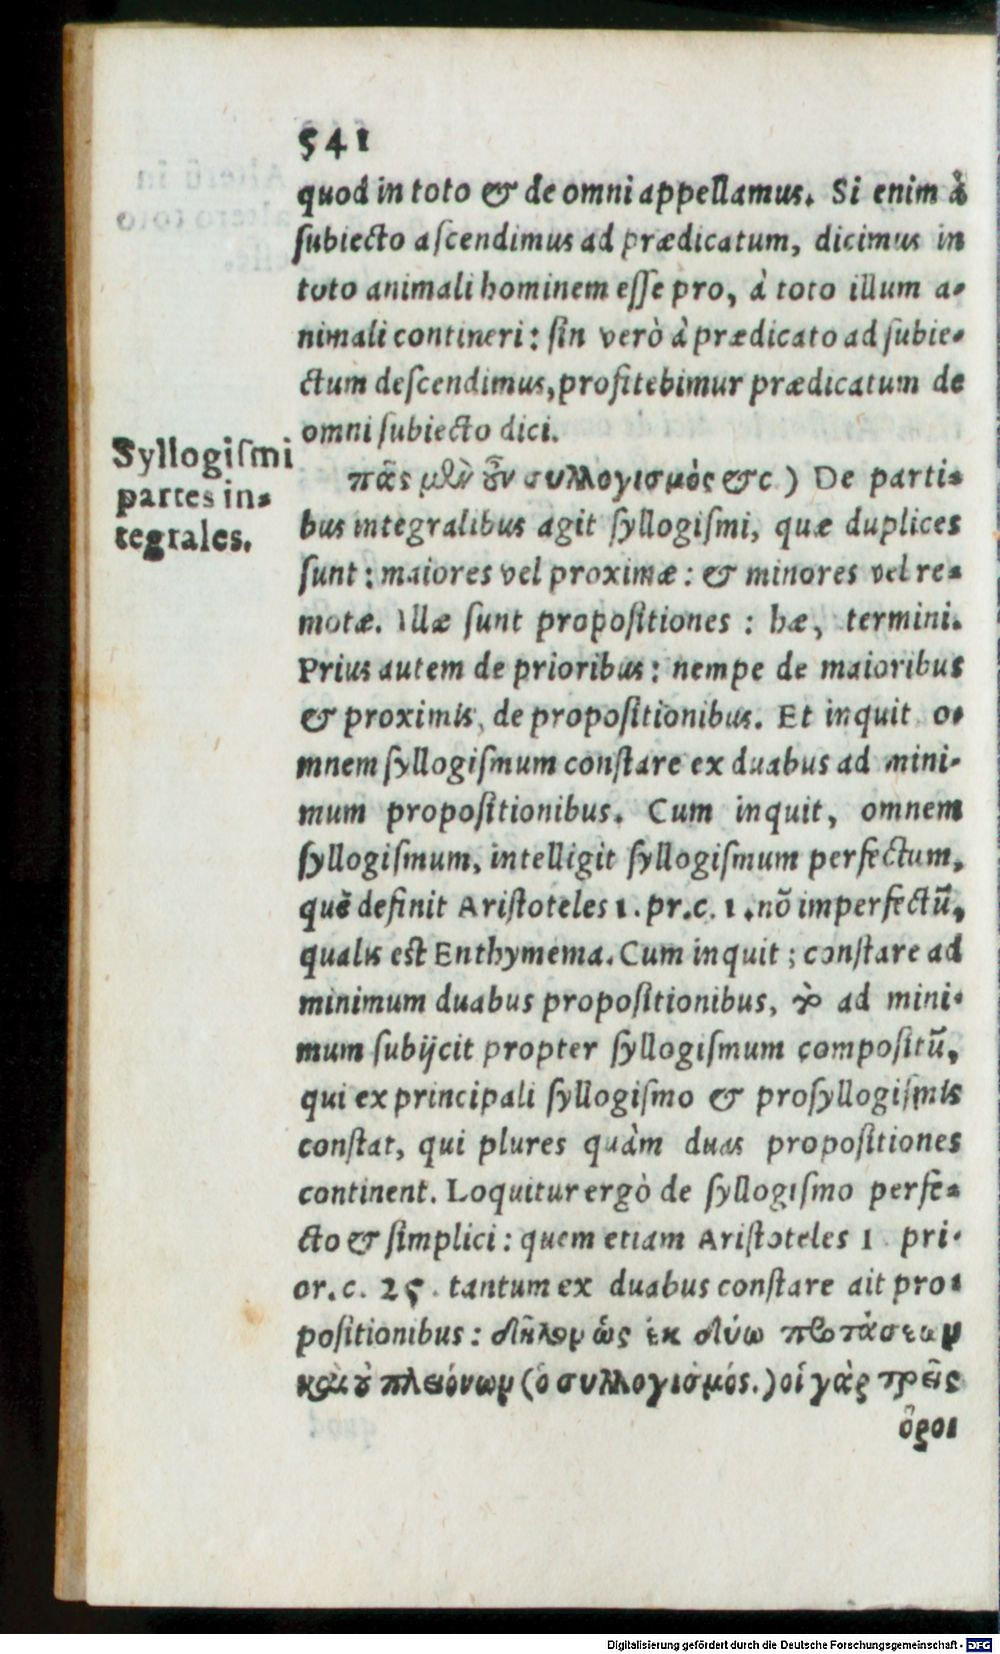 541
quod in toto & de omni appellamus. Si enim à
ſubiecto aſcendimus ad prædicatum, dicimus in
toto animali hominem eſſe pro, à toto illum a-
nimali contineri: ſin verò à prædicato ad ſubie-
ctum deſcendimus, profitebimur prædicatum de
omni ſubiecto dici.
Syllogiſmi
partes in-
tegrales.
πᾶς μὲν οὖν συλλογισμὸς &c) De parti-
bus integralibus agit ſyllogiſmi, quæ duplices
ſunt: maiores vel proximæ: & minores vel re-
motæ. Illæ ſunt propoſitiones: hæ, termini.
Prius autem de prioribus: nempe de maioribus
& proximis, de propoſitionibus. Et inquit o-
mnem ſyllogiſmum conſtare ex duabus ad mini-
mum propoſitionibus. Cum inquit, omnem
ſyllogiſmum, intelligit ſyllogiſmum perfectum,
quẽ definit Ariſtoteles 1. pr. c. 1. nõ imperfectũ,
qualis eſt Enthymema. Cum inquit; conſtare ad
minimum duabus propoſitionibus, τὸ ad mini-
mum ſubijcit propter ſyllogiſmum compoſitũ,
qui ex principali ſyllogiſmo & proſyllogiſmis
conſtat, qui plures quàm duas propoſitiones
continent. Loquitur ergò de ſyllogiſmo perfe-
cto & ſimplici: quem etiam Ariſtoteles 1 pri-
or. c. 25. tantum ex duabus conſtare ait pro-
poſitionibus: δῆλον ὡς ἐκ δύω προτάσεων
καὶ οὐ πλειόνων (ὁ συλλογισμός.) οἱ γὰρ τρεῖς
ὅροι
Digitalisierung gefördert durch die Deutsche Forschungsgemeinschaft - DFG